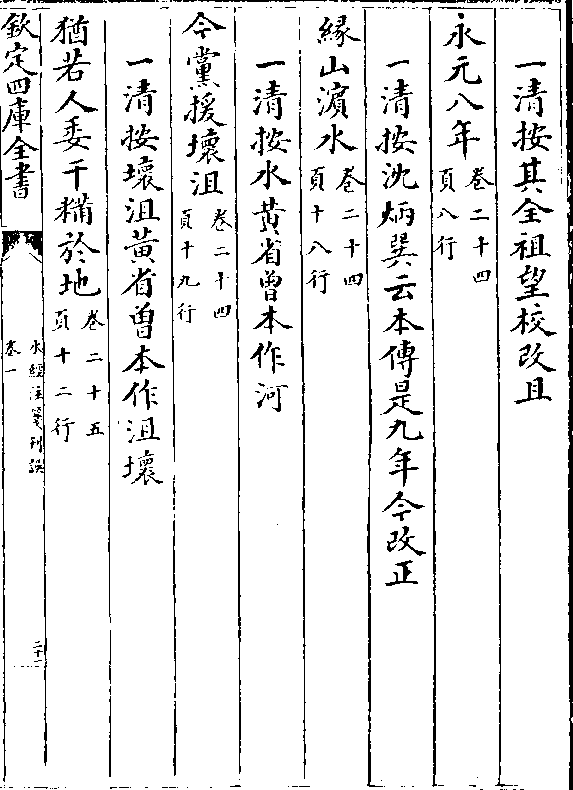 一清按其全祖望校改且
永元八年卷二十四頁八行
一清按沈炳巽云本傳是九年今改正
縁山濵水卷二十四頁十八行
一清按水黄省曾本作河
今黨援壊沮卷二十四頁十九行
一清按壊沮黄省曽本作沮壊
猶若人委干糒於地卷二十五頁十二行
欽定四庫全書
水經注箋刊誤
卷一
二十一